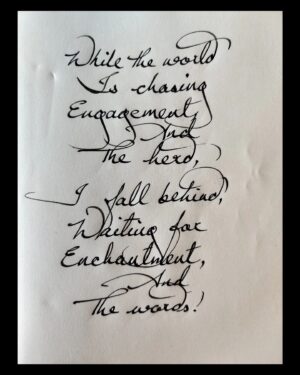 While the world
Is chasing
Engagement,
And
The herd,
I fall behind,
Waiting for
Enchantment,
And
The words!